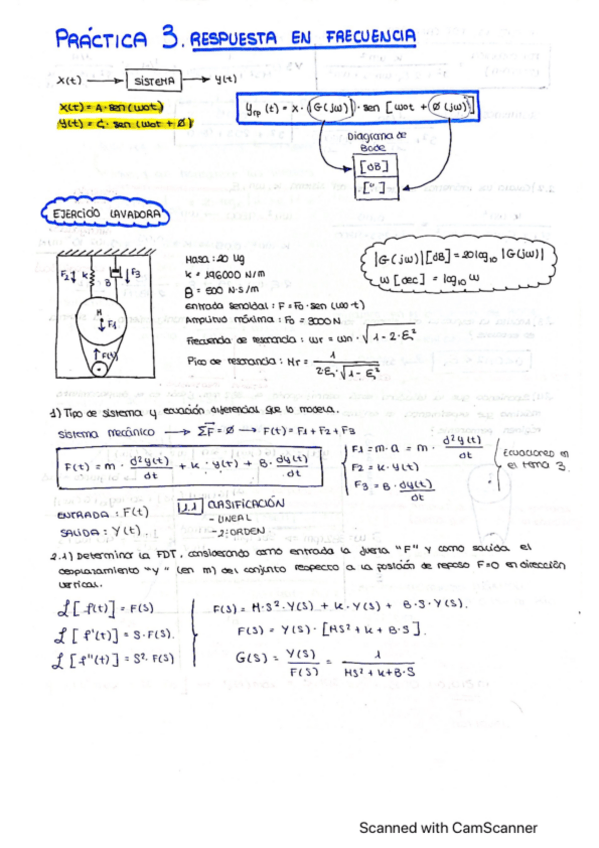 PRÁCTICA 3. RESPUESTA EN FRECUENCIA
X(t) → SISTEMA → Y(t)
X(t) = A · sen (wot)
Y(t) = C · sen (wot + Ø)
Yrp (t) = X · |G(jw)| · sen [wot + Ø(jw)]
Diagrama de
Bode
[dB]
[º]
EJERCICIO LAVADORA
F2 K B F3
M
F1
F(t)
Masa : 20 Kg
K = 196000 N/m
B = 600 N·s/m
Entrada senoidal : F = Fo · sen (wo·t)
Amplitud máxima : Fo = 3000 N
Frecuencia de resonancia : wr = wn · √1 - 2·ξ²
Pico de resonancia : Mr = 1 / 2ξ·√1 - ξ²
|G(jw)| [dB] = 20 log10 |G(jw)|
w [dec] = log10 w
1) Tipo de sistema y ecuación diferencial que lo modela.
Sistema mecánico → ΣF = Ø → F(t) = F1 + F2 + F3
F(t) = m · d²y(t)/dt + K · y(t) + B · dy(t)/dt
F1 = m·a = m · d²y(t)/dt
F2 = K · Y(t)
F3 = B · dy(t)/dt
Ecuaciones en
el tema 3.
ENTRADA : F(t)
SALIDA : Y(t).
1.1 CLASIFICACIÓN
- LINEAL
- 2º ORDEN
2.1) Determinar la FDT, considerando como entrada la fuerza "F" y como salida el
desplazamiento "y" (en m) del conjunto respecto a la posición de reposo F=0 en dirección
vertical.
ℒ [f(t)] = F(S)
ℒ [f'(t)] = S · F(S).
ℒ [f''(t)] = S² · F(S)
F(S) = M·S² · Y(S) + K · Y(S) + B · S · Y(S).
F(S) = Y(S) · [MS² + K + B·S].
G(S) = Y(S)/F(S) = 1 / MS² + K + B·S
Scanned with CamScanner